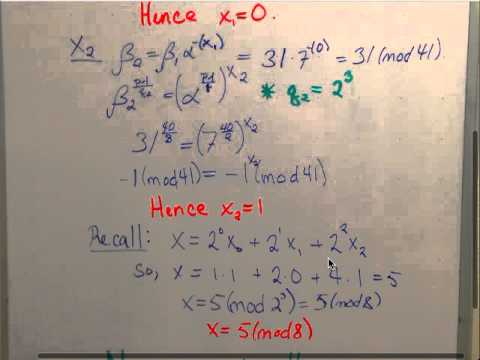 Hence x₁=0.
X₂ β₂ = β₁ α^-(x₁) = 31·7^-(0) = 31(mod 41)
β₂^(p-1/q₂) = (α^(p-1/q))^x₂ * q₂ = 2³
31^(40/8) = (7^(40/2))^x₂
-1(mod41) = -1^x₂(mod 41)
Hence x₂=1
Recall: X = 2⁰x₀ + 2¹x₁ + 2²x₂
So, x = 1.1 + 2.0 + 4.1 = 5
x = 5(mod 2³) = 5(mod 8)
x = 5(mod 8)